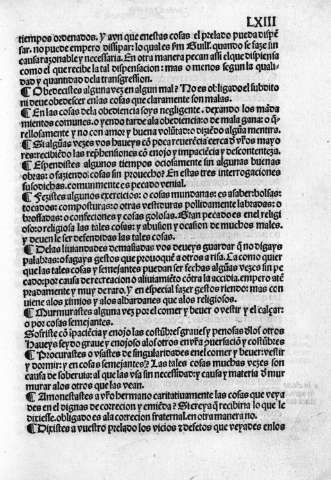 LXIII
tiempos ordenados. Y avn que enestas cosas el prelado pueda dispē
sar. no puede empero dissipar: lo qual es sm Guill. quando se faze sin
causa razonable y necessaria. En otra manera pecan assi el que dispensa
como el que recibe la tal dispensacion: mas o menos segun la quali-
dad y quantidad dela transgression.
¶ Obedecistes alguna vez en algun mal? No es obligado el subdito
ni deue obedescer enlas cosas que claramente son malas.
¶ En las cosas dela obediencia soys negligente. dexando los māda
mientos comunes. o yendo tarde ala obediēcia: o de mala gana: o q̄-
rellosamente y no con amor y buena volūtad: o diziēdo algūa mentira.
¶ Si algūas vezes vos baueys cō poca reuerēcia cerca d̄ vr̄os mayo
res: recibiēdo las reprehensiones cō enojo y impaciēcia y descontenteza.
¶ Espendistes algunos tiempos ociosamente sin algunas buenas
obras: o faziendo cosas sin prouecho? En estas tres interrogaciones
susodichas. comunmente es pecado venial.
¶ Fezistes algunos exercicios: o cosas mundanas: es asaber: bolsas:
tocados: composturas: o otras vestiduras polidamente labradas: o
broslladas: o confeciones y cosas golosas. Gran pecado es enel religi
oso: o religiosa las tales cosas: y abusion y ocasion de muchos males.
y deuen le ser defendidas las tales cosas.
¶ Delas liuiandades demasiadas vos deueys guardar q̄ no digays
palabras: o fagays gestos que prouoquē a otros a risa. Ca como quier
que las tales cosas y semejantes puedan ser fechas algūas vezes sin pe
cado: por causa de recreacion o aliuiamiēto cōtra la accidia. empero atē
pradamente y muy de raro. Y en especial fazer gestos riendo: mas con
uiene alos ximios y alos albardanes que alos religiosos.
¶ Murmurastes alguna vez por el comer y beuer o vestir y el calçar:
o por cosas semejantes.
Sofristes cō paciēcia y enojo las costūbres graues y penosas d̄los otros
Haueys seydo graue y enojoso alos otros en vr̄a cōuersaciō y costūbres
¶ Procurastes o vsastes de singularidades enel comer y beuer: vestir
y dormir: y en cosas semejantes? Las tales cosas muchas vezes son
causa de soberuia: al que las vsa sin necessidad: y causa y materia d̄ mur
murar alos otros que las vean.
¶ Amonestastes a vr̄o hermano caritatiuamente las cosas que veya
des en el dignas de correcion y emiēda? Si creya q̄ recibiria lo que le
dixiesse. obligado es ala correcion fraternal. en otra manera no.
¶ Dixistes a vuestro prelado los vicios o defetos que veyades enlos